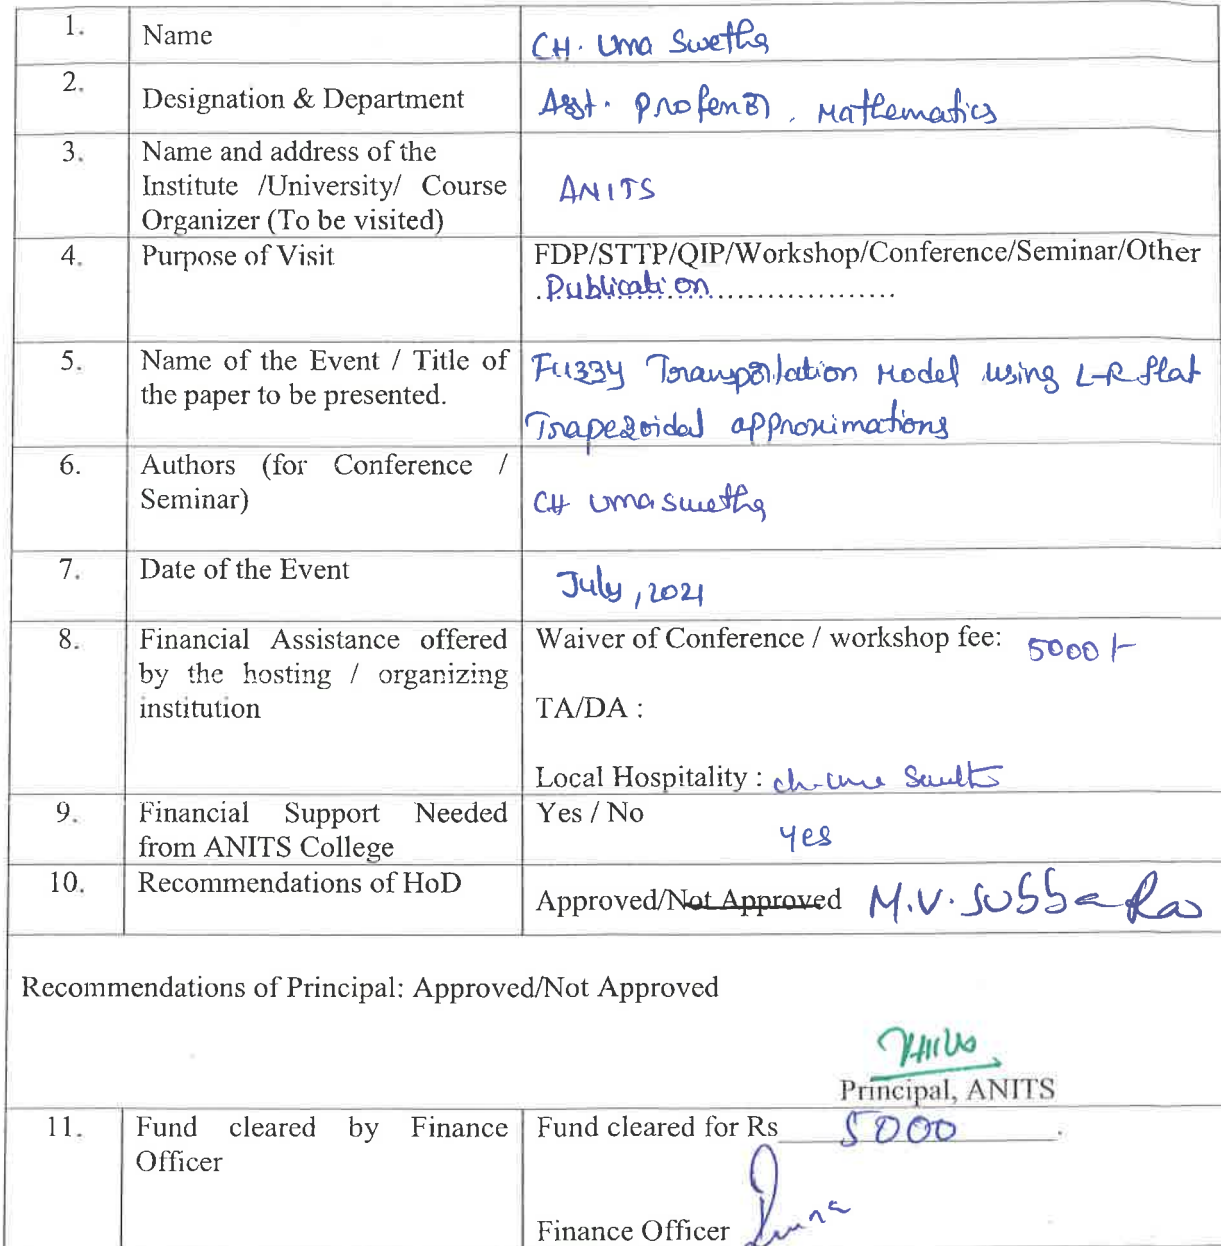 1. Name CH. Uma Swetha
2. Designation & Department Asst. Professor, Mathematics
3. Name and address of the
Institute /University/ Course
Organizer (To be visited)
ANITS
4. Purpose of Visit FDP/STTP/QIP/Workshop/Conference/Seminar/Other
.Publication....................
5. Name of the Event / Title of
the paper to be presented.
Fuzzy Transportation Model using L-R flat
Trapezoidal approximations
6. Authors (for Conference /
Seminar)
CH Uma Swetha
7. Date of the Event July, 2021
8. Financial Assistance offered
by the hosting / organizing
institution
Waiver of Conference / workshop fee: 5000/-
TA/DA :
Local Hospitality :
9. Financial Support Needed
from ANITS College
Yes / No
Yes
10. Recommendations of HoD Approved/Not Approved M.V. Subba Rao
Recommendations of Principal: Approved/Not Approved
Principal, ANITS
11. Fund cleared by Finance
Officer
Fund cleared for Rs 5000 .
Finance Officer